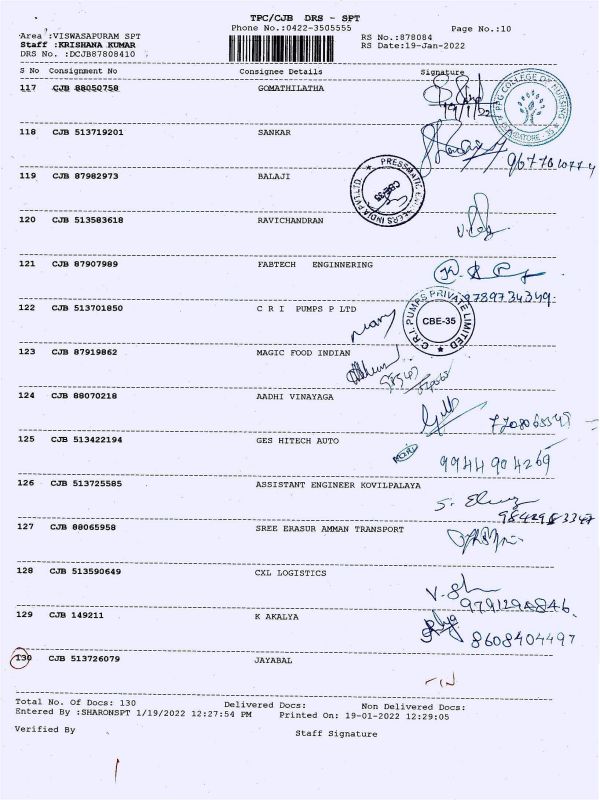 TPC/CJB DRS - SPT
Phone No.:0422-3505555
Page No.:10
Area :VISWASAPURAM SPT
RS No.:878084
Staff :KRISHANA KUMAR
RS Date:19-Jan-2022
DRS No. :DCJB87808410
S No Consignment No Consignee Details Signature
117 CJB 88050758 GOMATHILATHA
19/1/22
PPG COLLEGE OF NURSING
COIMBATORE - 35
118 CJB 513719201 SANKAR
119 CJB 87982973 BALAJI
CBE-35
120 CJB 513583618 RAVICHANDRAN
121 CJB 87907989 FABTECH ENGINNERING
9789734349
122 CJB 513701850 C R I PUMPS P LTD
C.R.I. PUMPS PRIVATE LIMITED
CBE-35
123 CJB 87919862 MAGIC FOOD INDIAN
124 CJB 88070218 AADHI VINAYAGA
125 CJB 513422194 GES HITECH AUTO
9944904269
126 CJB 513725585 ASSISTANT ENGINEER KOVILPALAYA
127 CJB 88065958 SREE ERASUR AMMAN TRANSPORT
128 CJB 513590649 CXL LOGISTICS
129 CJB 149211 K AKALYA
8608404497
130 CJB 513726079 JAYABAL
Total No. Of Docs: 130 Delivered Docs: Non Delivered Docs:
Entered By :SHARONSPT 1/19/2022 12:27:54 PM Printed On: 19-01-2022 12:29:05
Verified By Staff Signature